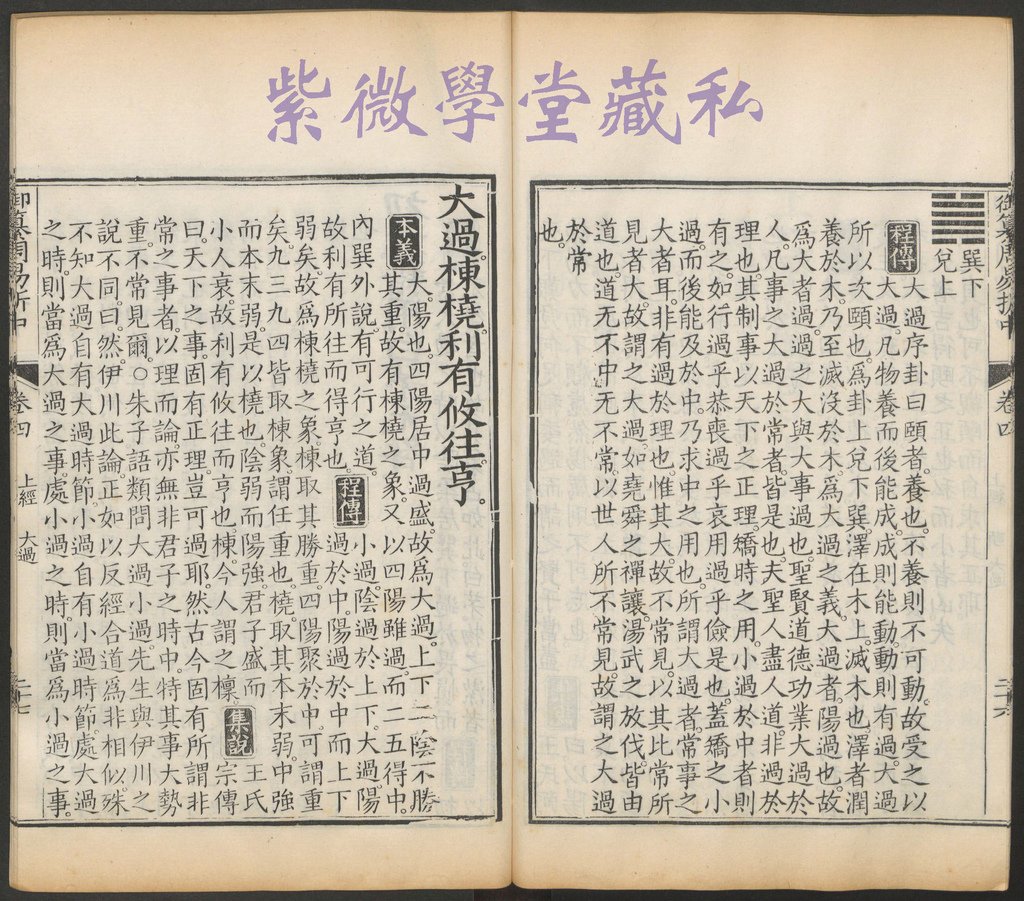 紫微學堂藏私
御纂周易折中 卷四 二十六
巽下
兌上
程傳 大過序卦曰頤者。養也。不養則不可動。故受之以
大過。凡物養而後能成。成則能動。動則有過。大過
所以次頤也。爲卦上兌下巽。澤在木上。滅木也。澤者潤
養於木。乃至滅沒於木。爲大過之義。大過者。陽過也。故
爲大者過。過之大。與大事過也。聖賢道德功業。大過於
人。凡事之大過於常者。皆是也。夫聖人盡人道。非過於
理也。其制事以天下之正理。矯時之用。小過於中者。則
有之。如行過乎恭。喪過乎哀。用過乎儉是也。蓋矯之小
過。而後能及於中。乃求中之用也。所謂大過者。常事之
大者耳。非有過於理也。惟其大。故不常見。以其比常所
見者大。故謂之大過。如堯舜之禪讓。湯武之放伐。皆由
道也。道无不中。无不常。以世人所不常見。故謂之大過
於常
也。
大過。棟橈。利有攸往。亨。
本義 大。陽也。四陽居中過盛。故爲大過。上下二陰。不勝
其重。故有棟橈之象。又以四陽雖過。而二五得中。
內巽外說。有可行之道。
故利有所往而得亨也。 程傳 小過。陰過於上下。大過。陽
過於中。陽過於中。而上下
弱矣。故爲棟橈之象。棟取其勝重。四陽聚於中。可謂重
矣。九三九四。皆取棟象。謂任重也。橈。取其本末弱。中強
而本末弱。是以橈也。陰弱而陽強。君子盛而
小人衰。故利有攸往而亨也。棟。今人謂之檁。 集說 王氏
宗傳
曰。天下之事。固有正理。豈可過耶。然古今固有所謂非
常之事者。以理而論。亦無非君子之時中。特其事大勢
重。不常見爾。○朱子語類。問大過小過。先生與伊川之
說不同。曰。然。伊川此論。正如以反經合道爲非相似。殊
不知大過自有大過時節。小過自有小過時節。處大過
之時。則當爲大過之事。處小過之時。則當爲小過之事。
御纂周易折中 卷四 上經 大過 二十七